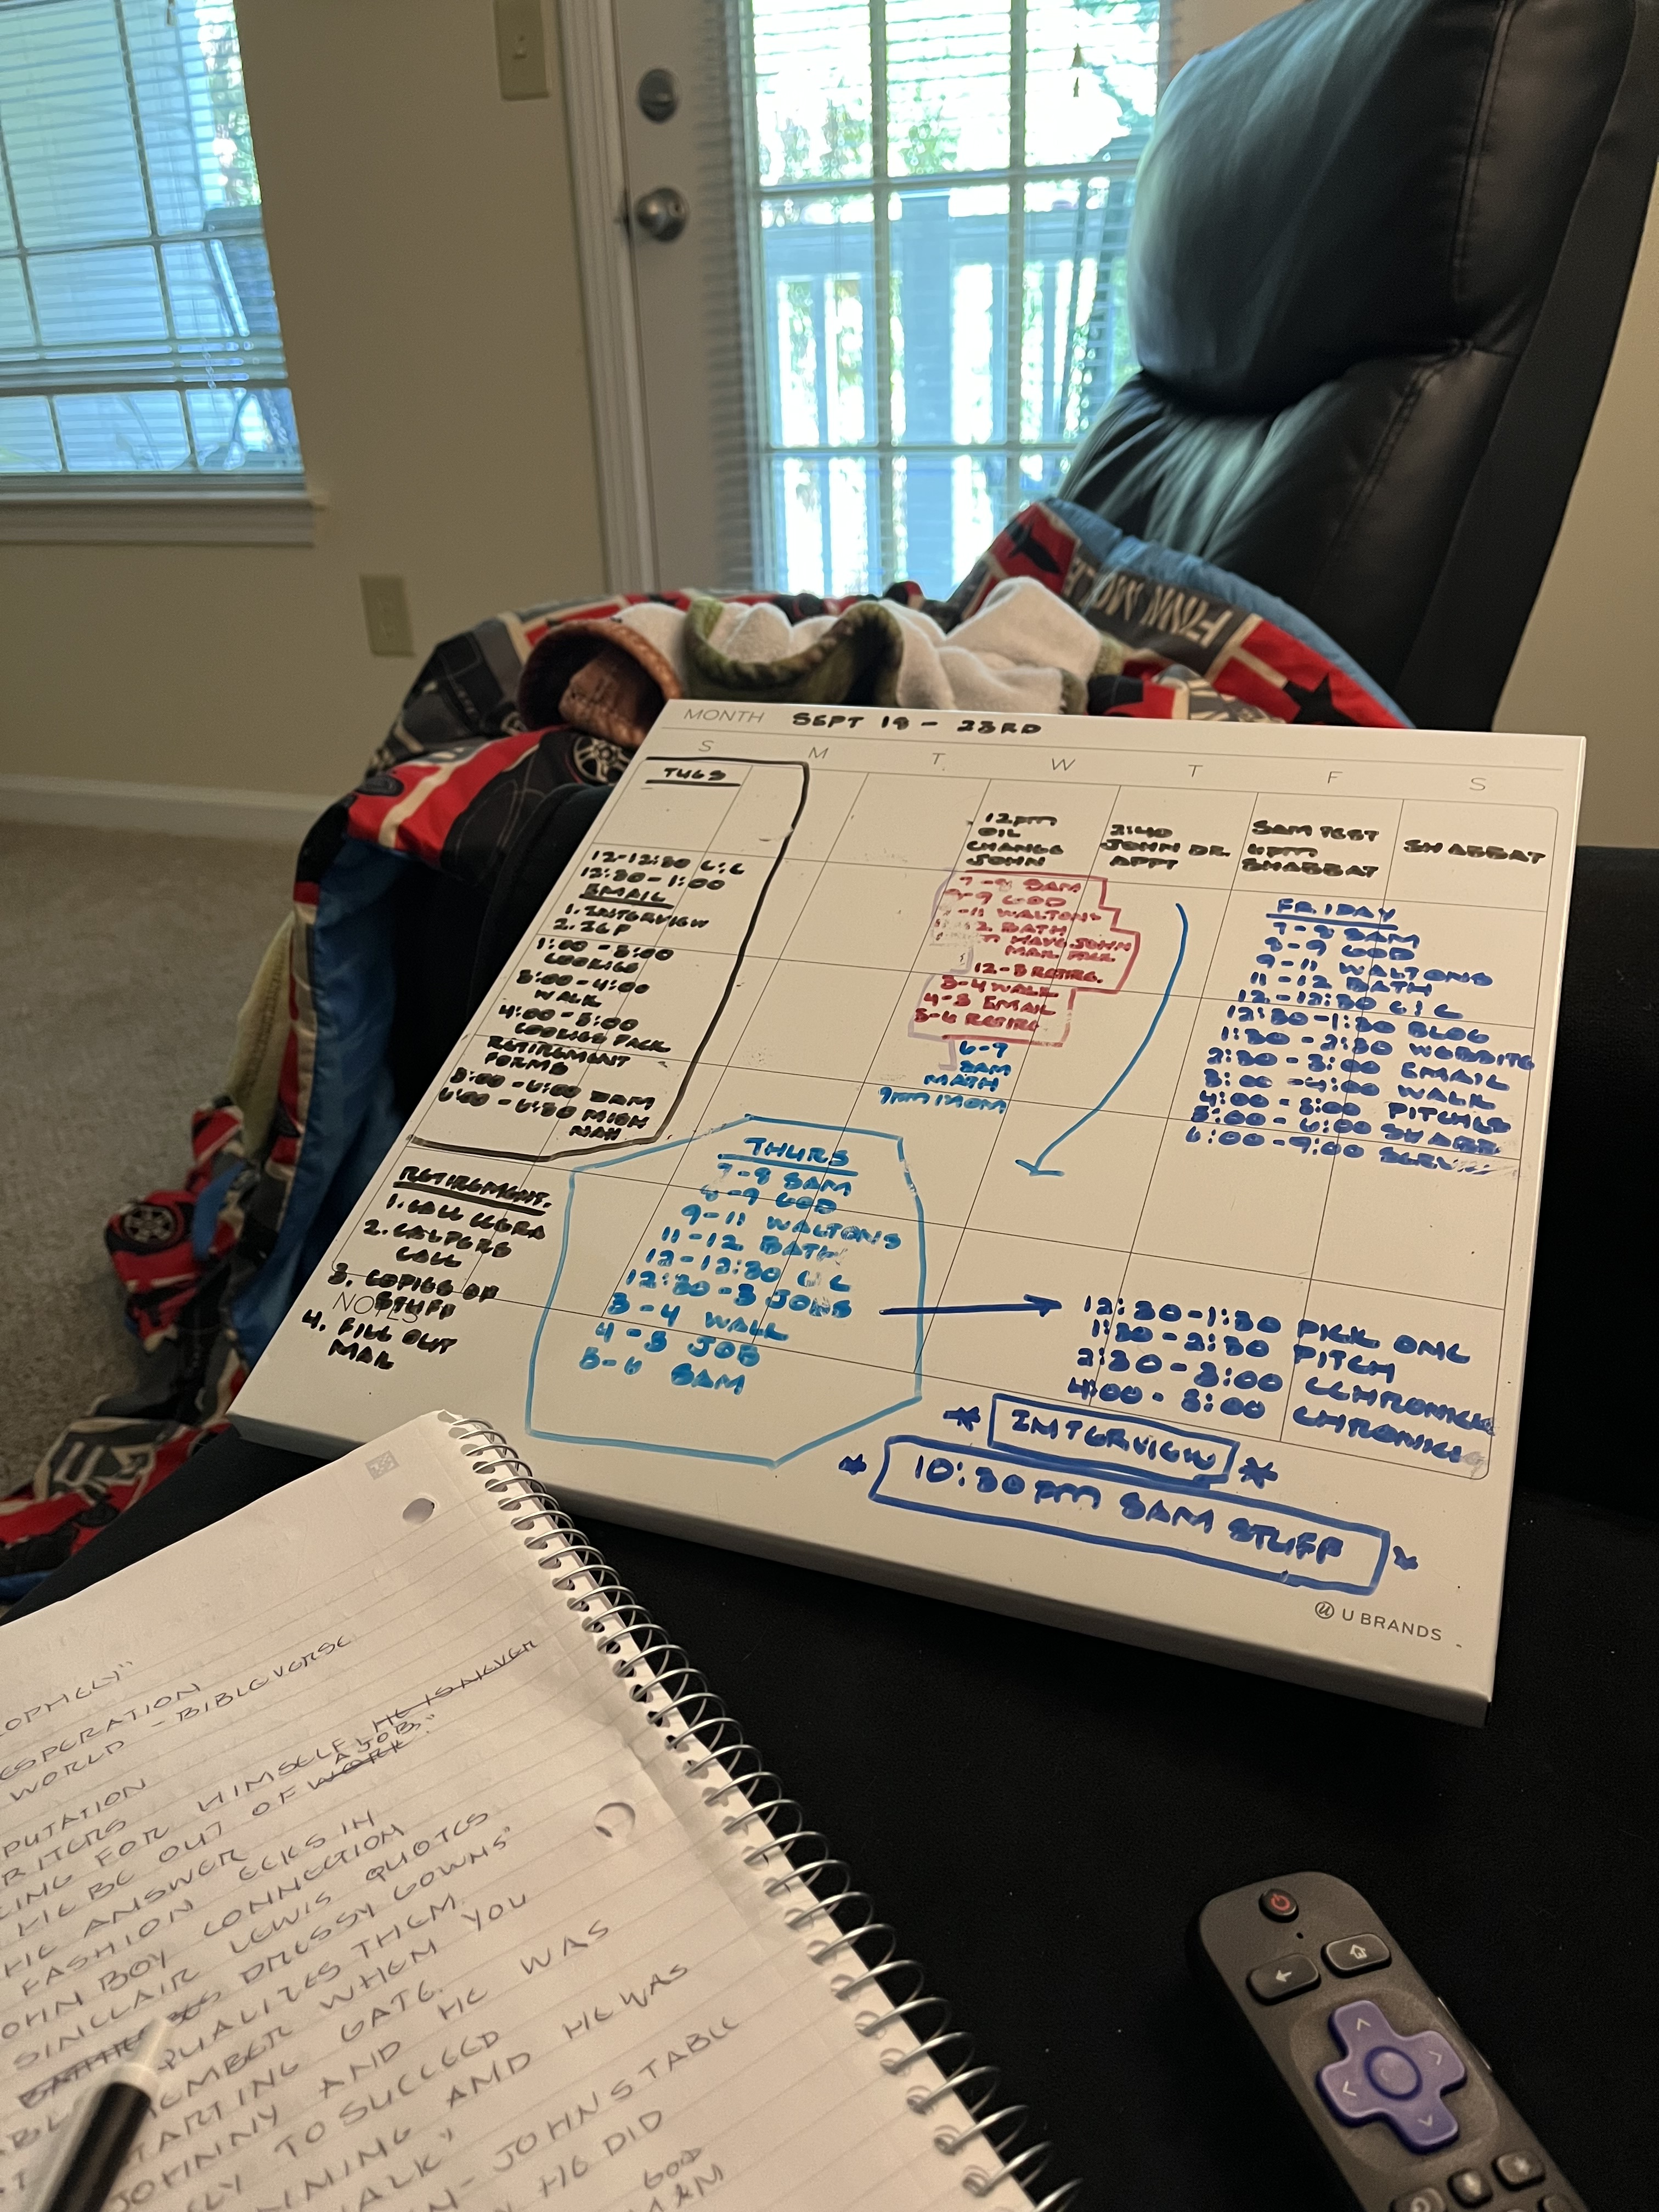 MONTH SEPT 19 - 23RD
S M T W T F S
TUES
12-12:30 C:C
12:30-1:00
EMAIL
1. INTERVIEW
2.
1:00-3:00
COOKIES
3:00-4:00
WALK
4:00-5:00
COOKIES PACK
RETIREMENT
FORMS
5:00-6:00 SAM
6:00-6:30 MISH
NAH
RETIREMENT.
1. CALL
2. CALPERS
CALL
3. COPIES OF
STUFF
NOTES
4. FILL OUT
MAIL
12pm
OIL
CHANGE
JOHN
7-8 SAM
8-9 GOD
-11 WALTONS
BATH
HAVE JOHN
MAIL PACK.
12-3 RETIRE.
3-4 WALK
4-5 EMAIL
5-6 RETIRE
6-9
SAM
MATH
9pm MOM
2:40
JOHN DR.
APPT
SAM TEST
4pm
SHABBAT
SHABBAT
FRIDAY
7-8 SAM
8-9 GOD
9-11 WALTONS
11-12 BATH
12-12:30 C:C
12:30-1:30 BLOG
1:30-2:30 WEBSITE
2:30-3:00 EMAIL
3:00-4:00 WALK
4:00-5:00 PITCHES
5:00-6:00 SHABB
6:00-9:00
THURS
7-8 SAM
8-9 GOD
9-11 WALTONS
11-12 BATH
12-12:30 C C
12:30-3 JOBS
3-4 WALK
4-5 JOB
5-6 SAM
12:30-1:30 PICK ONE
1:30-2:30 PITCH
2:30-3:00 CCHRONICLE
4:00-5:00 CHRONICLE
* INTERVIEW *
* 10:30pm SAM STUFF *
U BRANDS
WORLD - BIBLE VERSE
FOR HIMSELF HE IS NEVER
A JOB
HE BE OUT OF WORK."
ANSWER
FASHION ECKS IN
BOY CONNECTION
SINCLAIR LEWIS QUOTES
DRESSY GOWNS"
THEM.
WHEN YOU
GATE.
JOHNNY AND HE WAS
TO SUCCEED
AND HE WAS
WALK"
- JOHN STABLE
HE DID
GOD